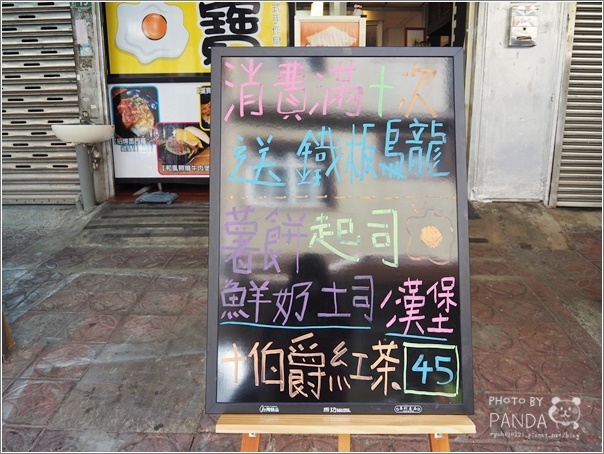 寶
消費滿十次
送 鐵板烏龍
薯餅起司
鮮奶土司/漢堡
+伯爵紅茶 45
PHOTO BY
PANDA